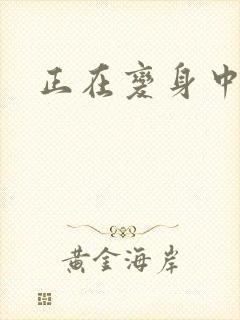 正在變身中
黃金海岸